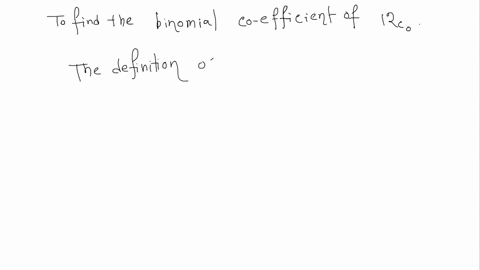 To find the binomial co-efficient of 12c₀.
The definition o